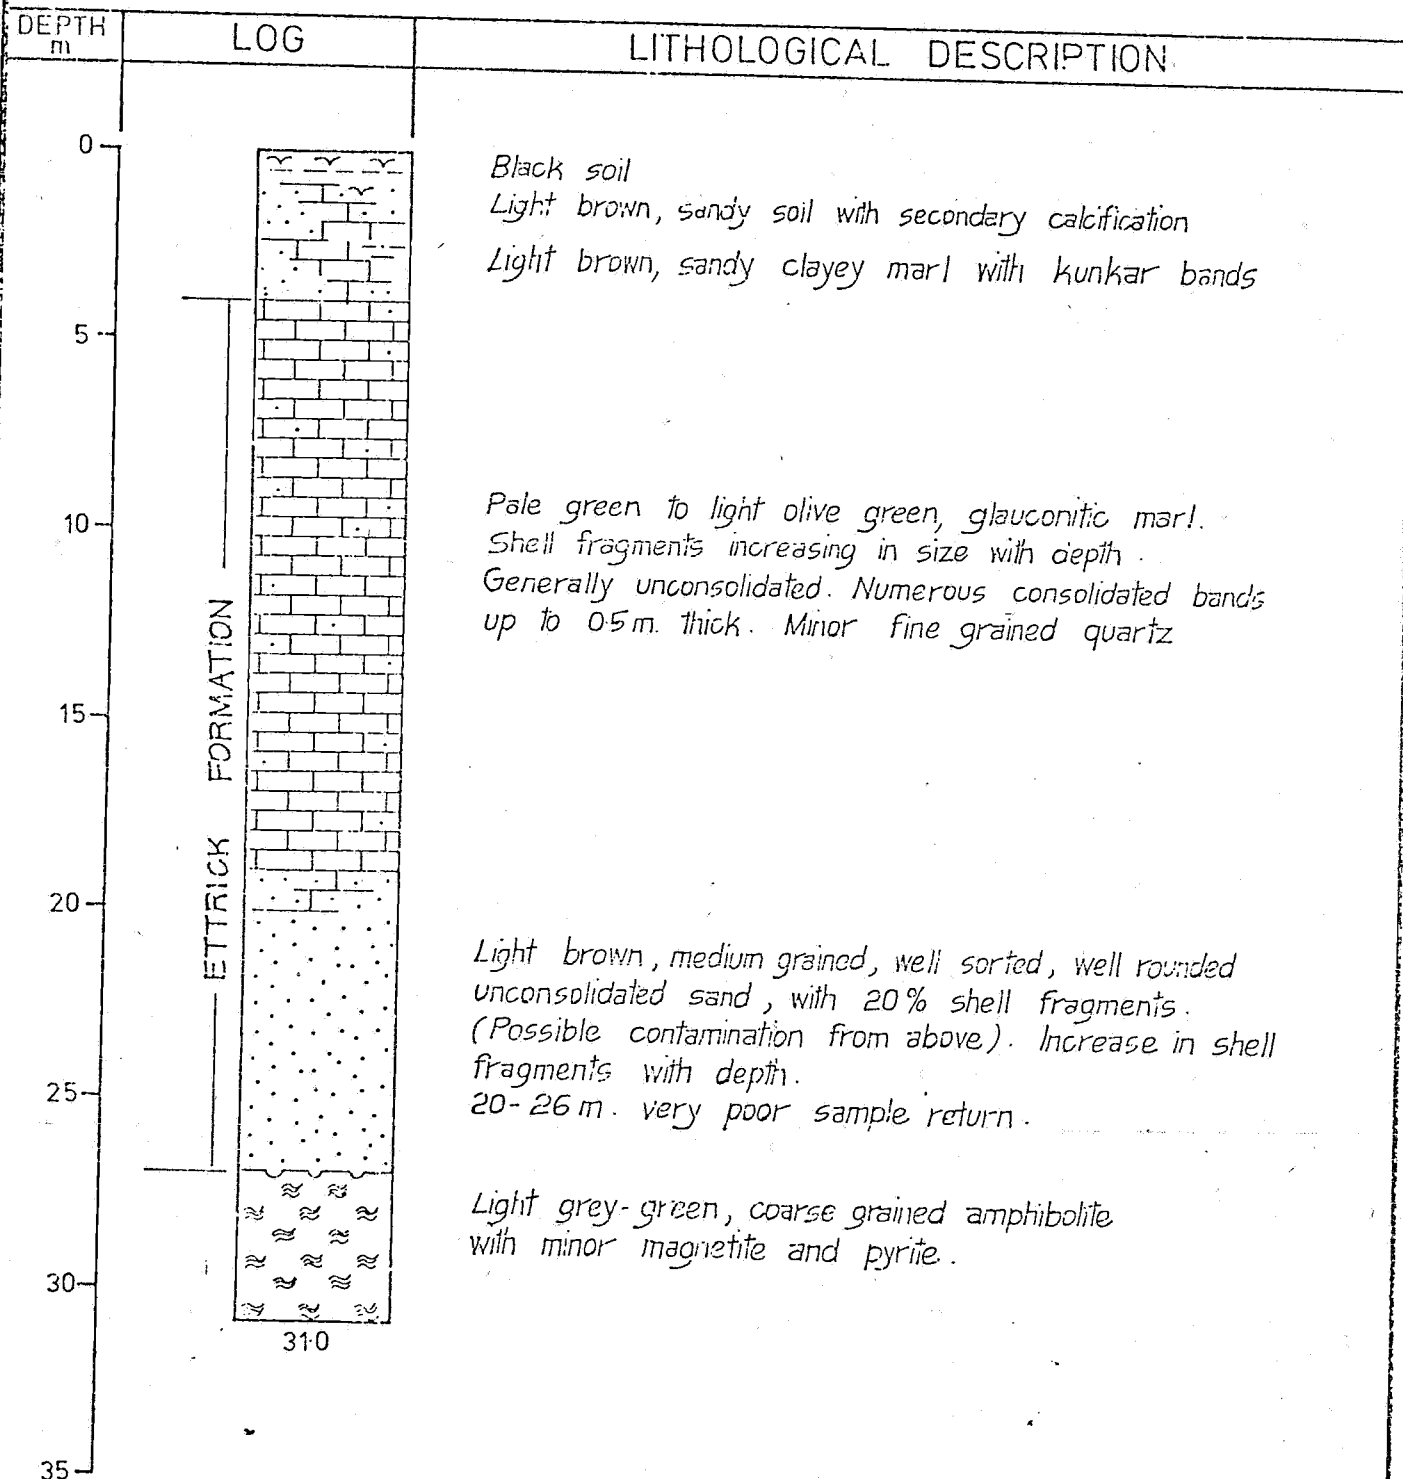 DEPTH
m
LOG
LITHOLOGICAL DESCRIPTION
0
Black soil
Light brown, sandy soil with secondary calcification
Light brown, sandy clayey marl with kunkar bands
5
10
Pale green to light olive green, glauconitic marl.
Shell fragments increasing in size with depth.
Generally unconsolidated. Numerous consolidated bands
up to 0·5m. thick. Minor fine grained quartz
15
ETTRICK FORMATION
20
Light brown, medium grained, well sorted, well rounded
unconsolidated sand, with 20% shell fragments.
(Possible contamination from above). Increase in shell
fragments with depth.
20-26m. very poor sample return.
25
Light grey-green, coarse grained amphibolite
with minor magnetite and pyrite.
30
31·0
35